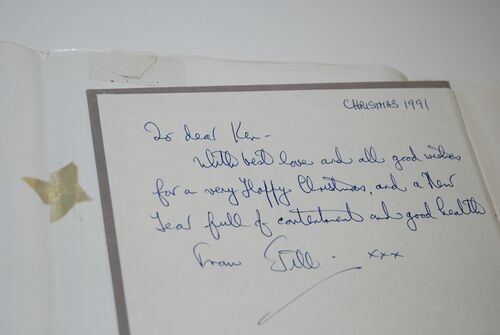 CHRISTMAS 1991
To dear Ken -
With best love and all good wishes
for a very Happy Christmas, and a New
Year full of contentment and good health.
From Jill. xxx